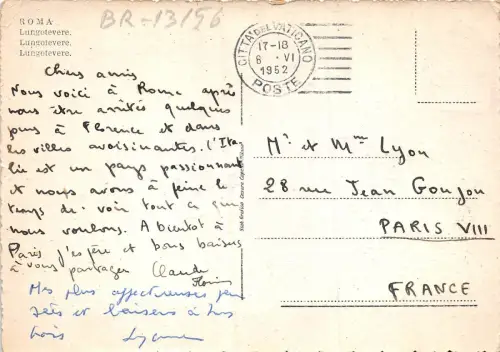 BR-13/56
ROMA
Lungotevere.
Lungotevere.
Lungotevere.
CITTA' DEL VATICANO
17-18
8 · VI
1952
POSTE
Chers amis
Nous voici à Rome après
nous être arrêtés quelques
jours à Florence et dans
les villes avoisinantes. L'Ita
lie est un pays passionnant
et nous avons à peine le
temps de voir tout ce que
nous voulons. A bientôt à
Paris j'espère et bons baisers
à vous partager Claude
Mes plus affectueuses pen
sées et baisers à tous
trois
Mr et Mme Lyon
28 rue Jean Goujon
PARIS VIII
FRANCE